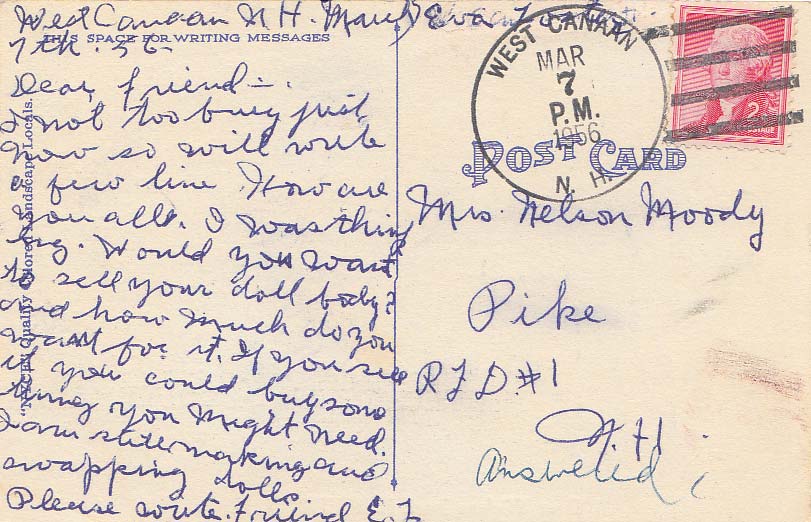 West Canaan N H. March
7th. 56
THIS SPACE FOR WRITING MESSAGES
Dear friend-.
I not too busy just
now so will write
a few line. How are
you alls. I was think
ing. Would you want
to sell your doll body?
and how much do you
want for it. If you sell
it you could buy some
thing you might need.
I am still making and
swapping dolls.
Please write. Friend E.
Eva
Quality Colored Landscape Locals.
WEST CANAAN
MAR
7
P.M.
1956
N. H.
2
POST CARD
Mrs. Nelson Moody
Pike
R F D. #1
N. H.
Answered